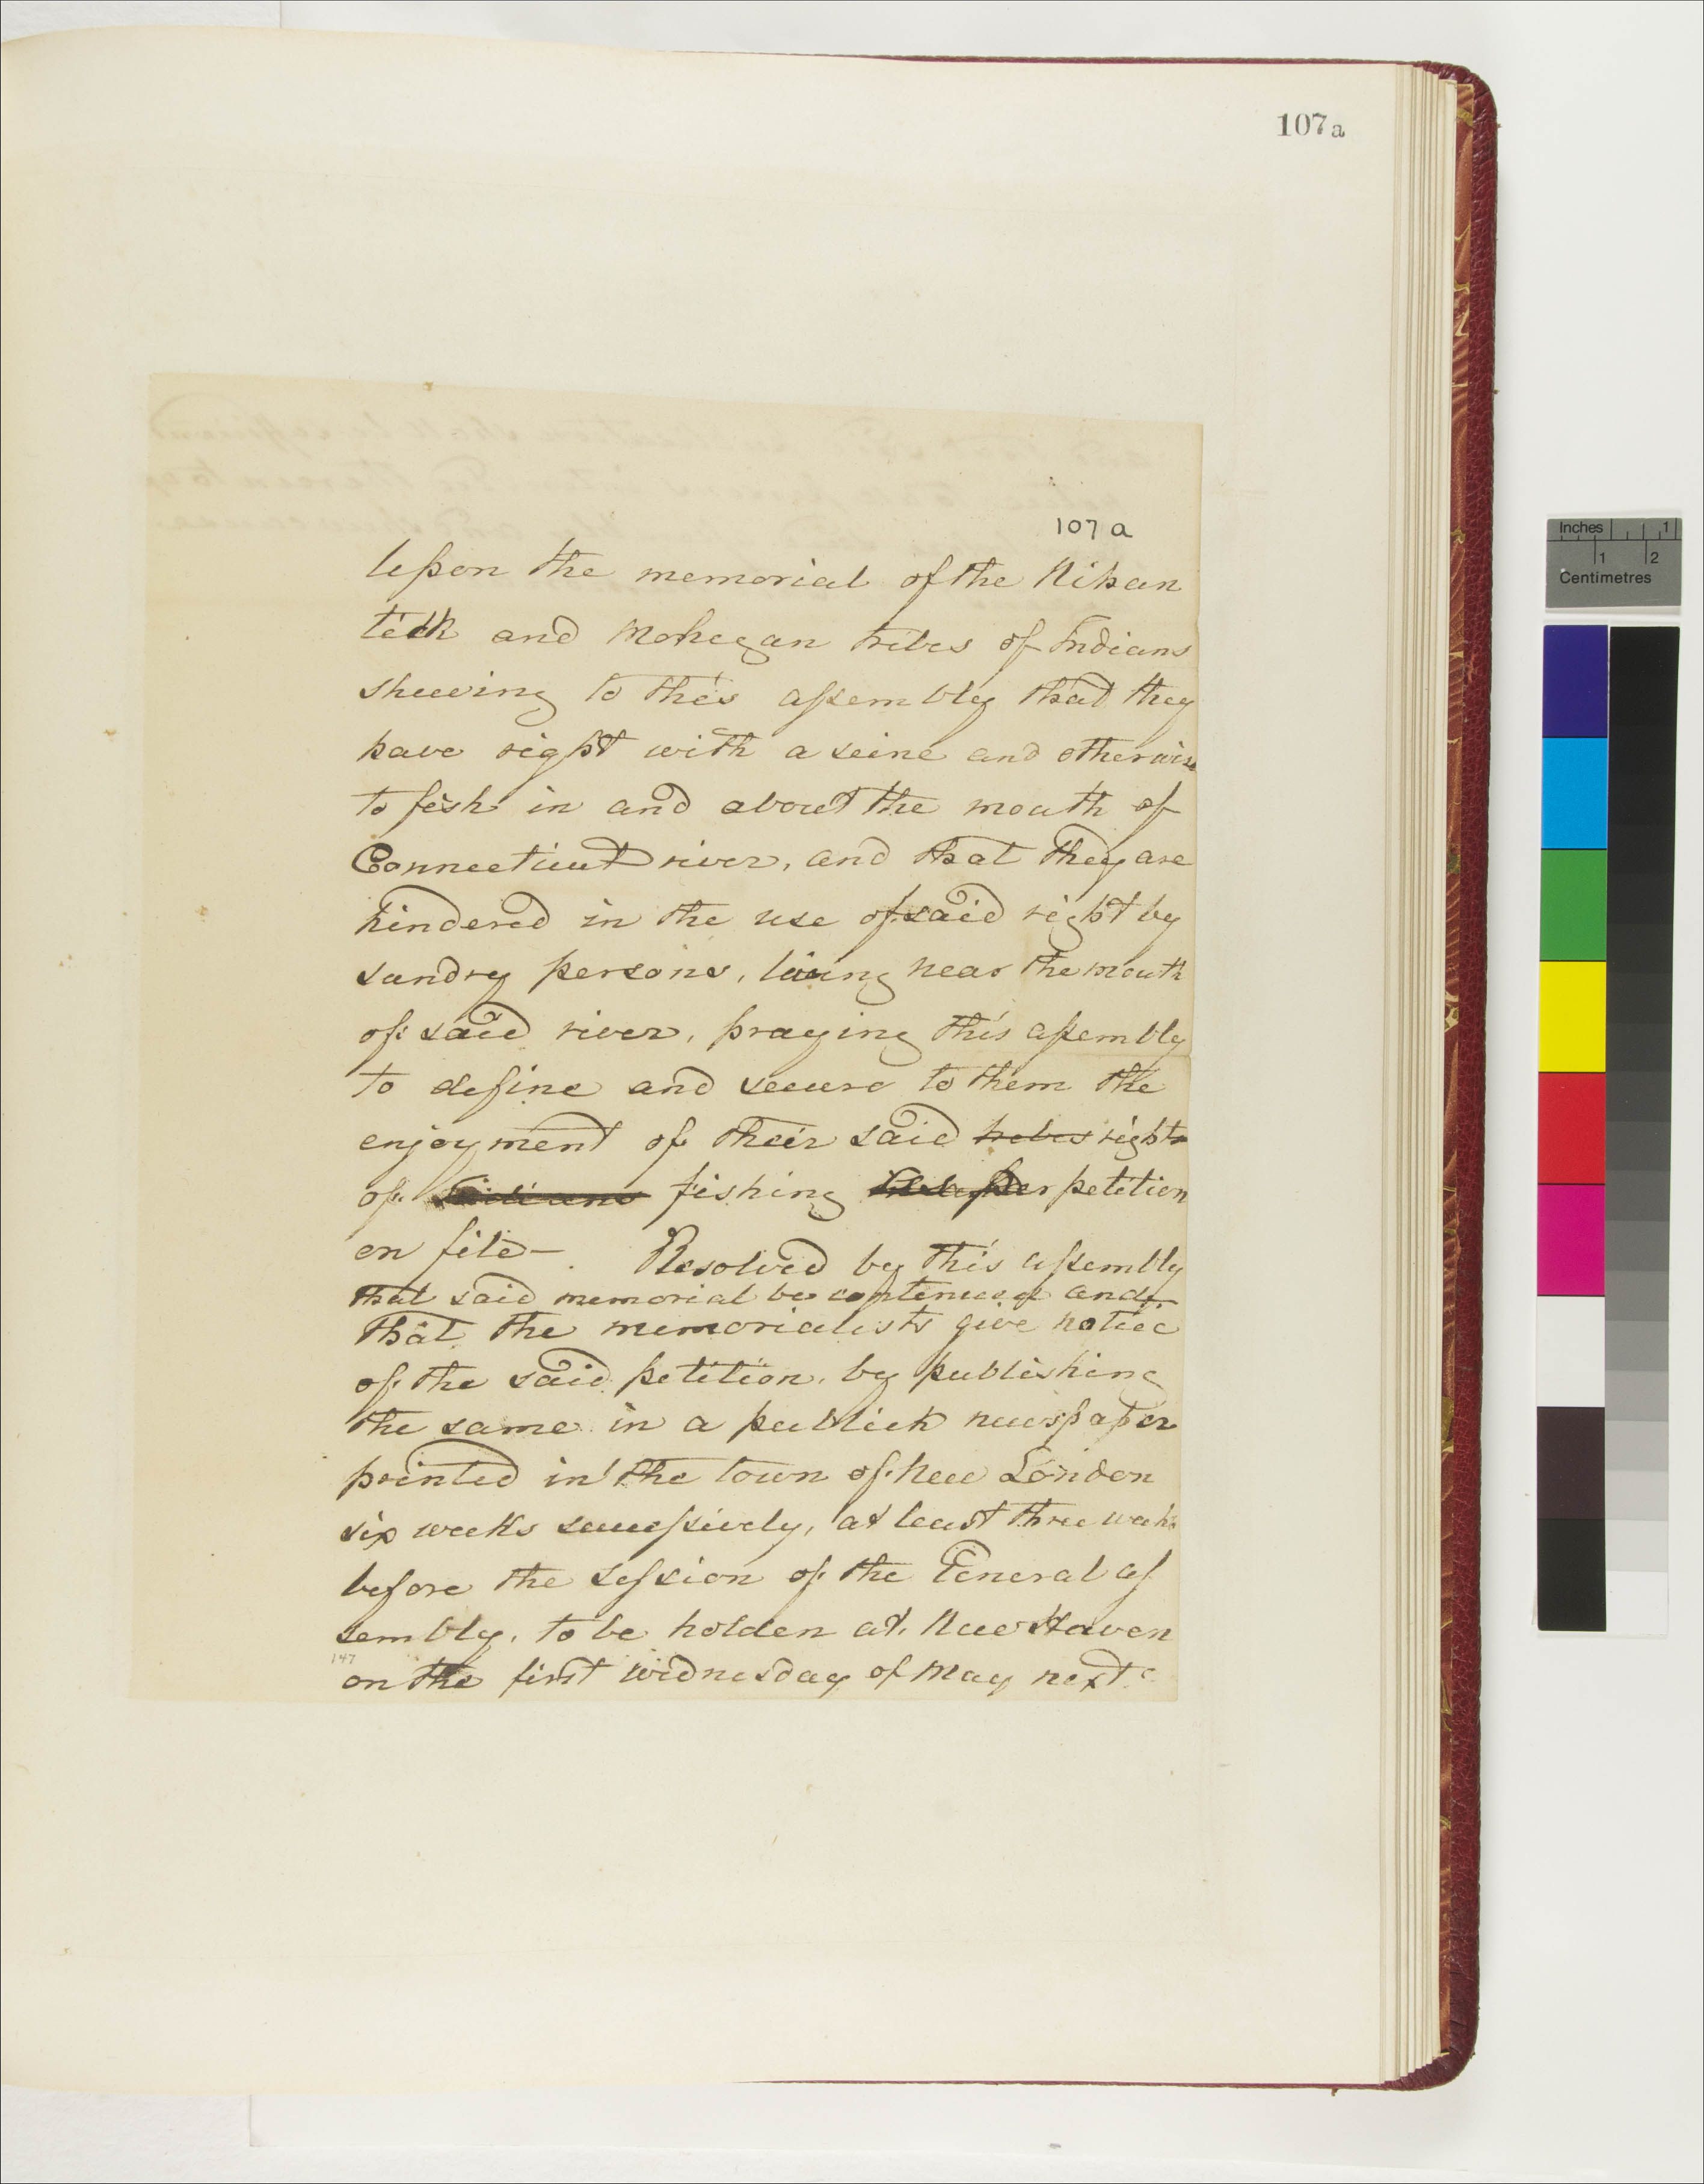 107a
107 a
Upon the memorial of the Nihan
tick and Mohegan tribes of Indians
shewing to this assembly that they
have right with a seine and otherwise
to fish in and about the mouth of
Connecticut river, and that they are
hindered in the use of said right by
sundry persons, living near the mouth
of said river, praying this assembly
to define and secure to them the
enjoyment of their said tribes rights
of Indians fishing per petition
on file—. Resolved by this assembly
that said memorial be continued and
that the memorialists give notice
of the said petition, by publishing
the same in a publick newspaper
printed in the town of New London
six weeks successively, at least three weeks
before the session of the General as
sembly, to be holden at New Haven
147
on the first wednesday of May next
Inches 1
1 2
Centimetres